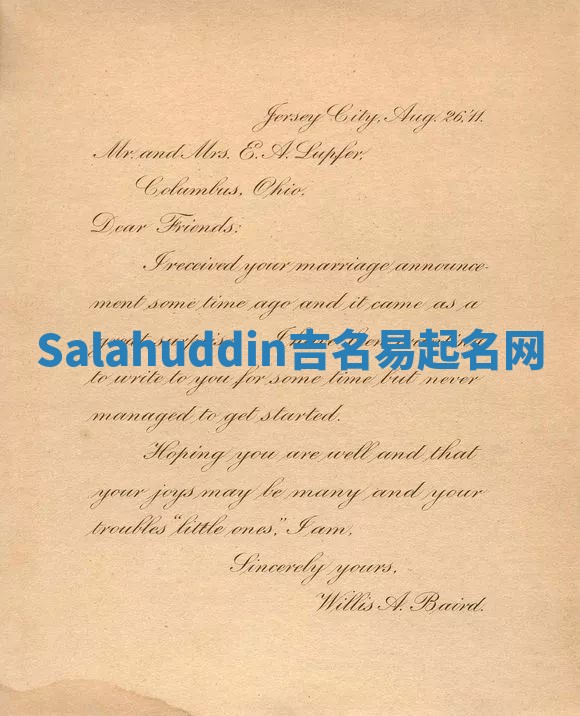 Jersey City, Aug. 26, '11.
Mr. and Mrs. E. A. Lupfer,
Columbus, Ohio.
Dear Friends:
I received your marriage announce-
ment some time ago and it came as a
Salahuddin吉名易起名网
to write to you for some time but never
managed to get started.
Hoping you are well and that
your joys may be many and your
troubles "little ones," I am,
Sincerely yours,
Willis A. Baird.